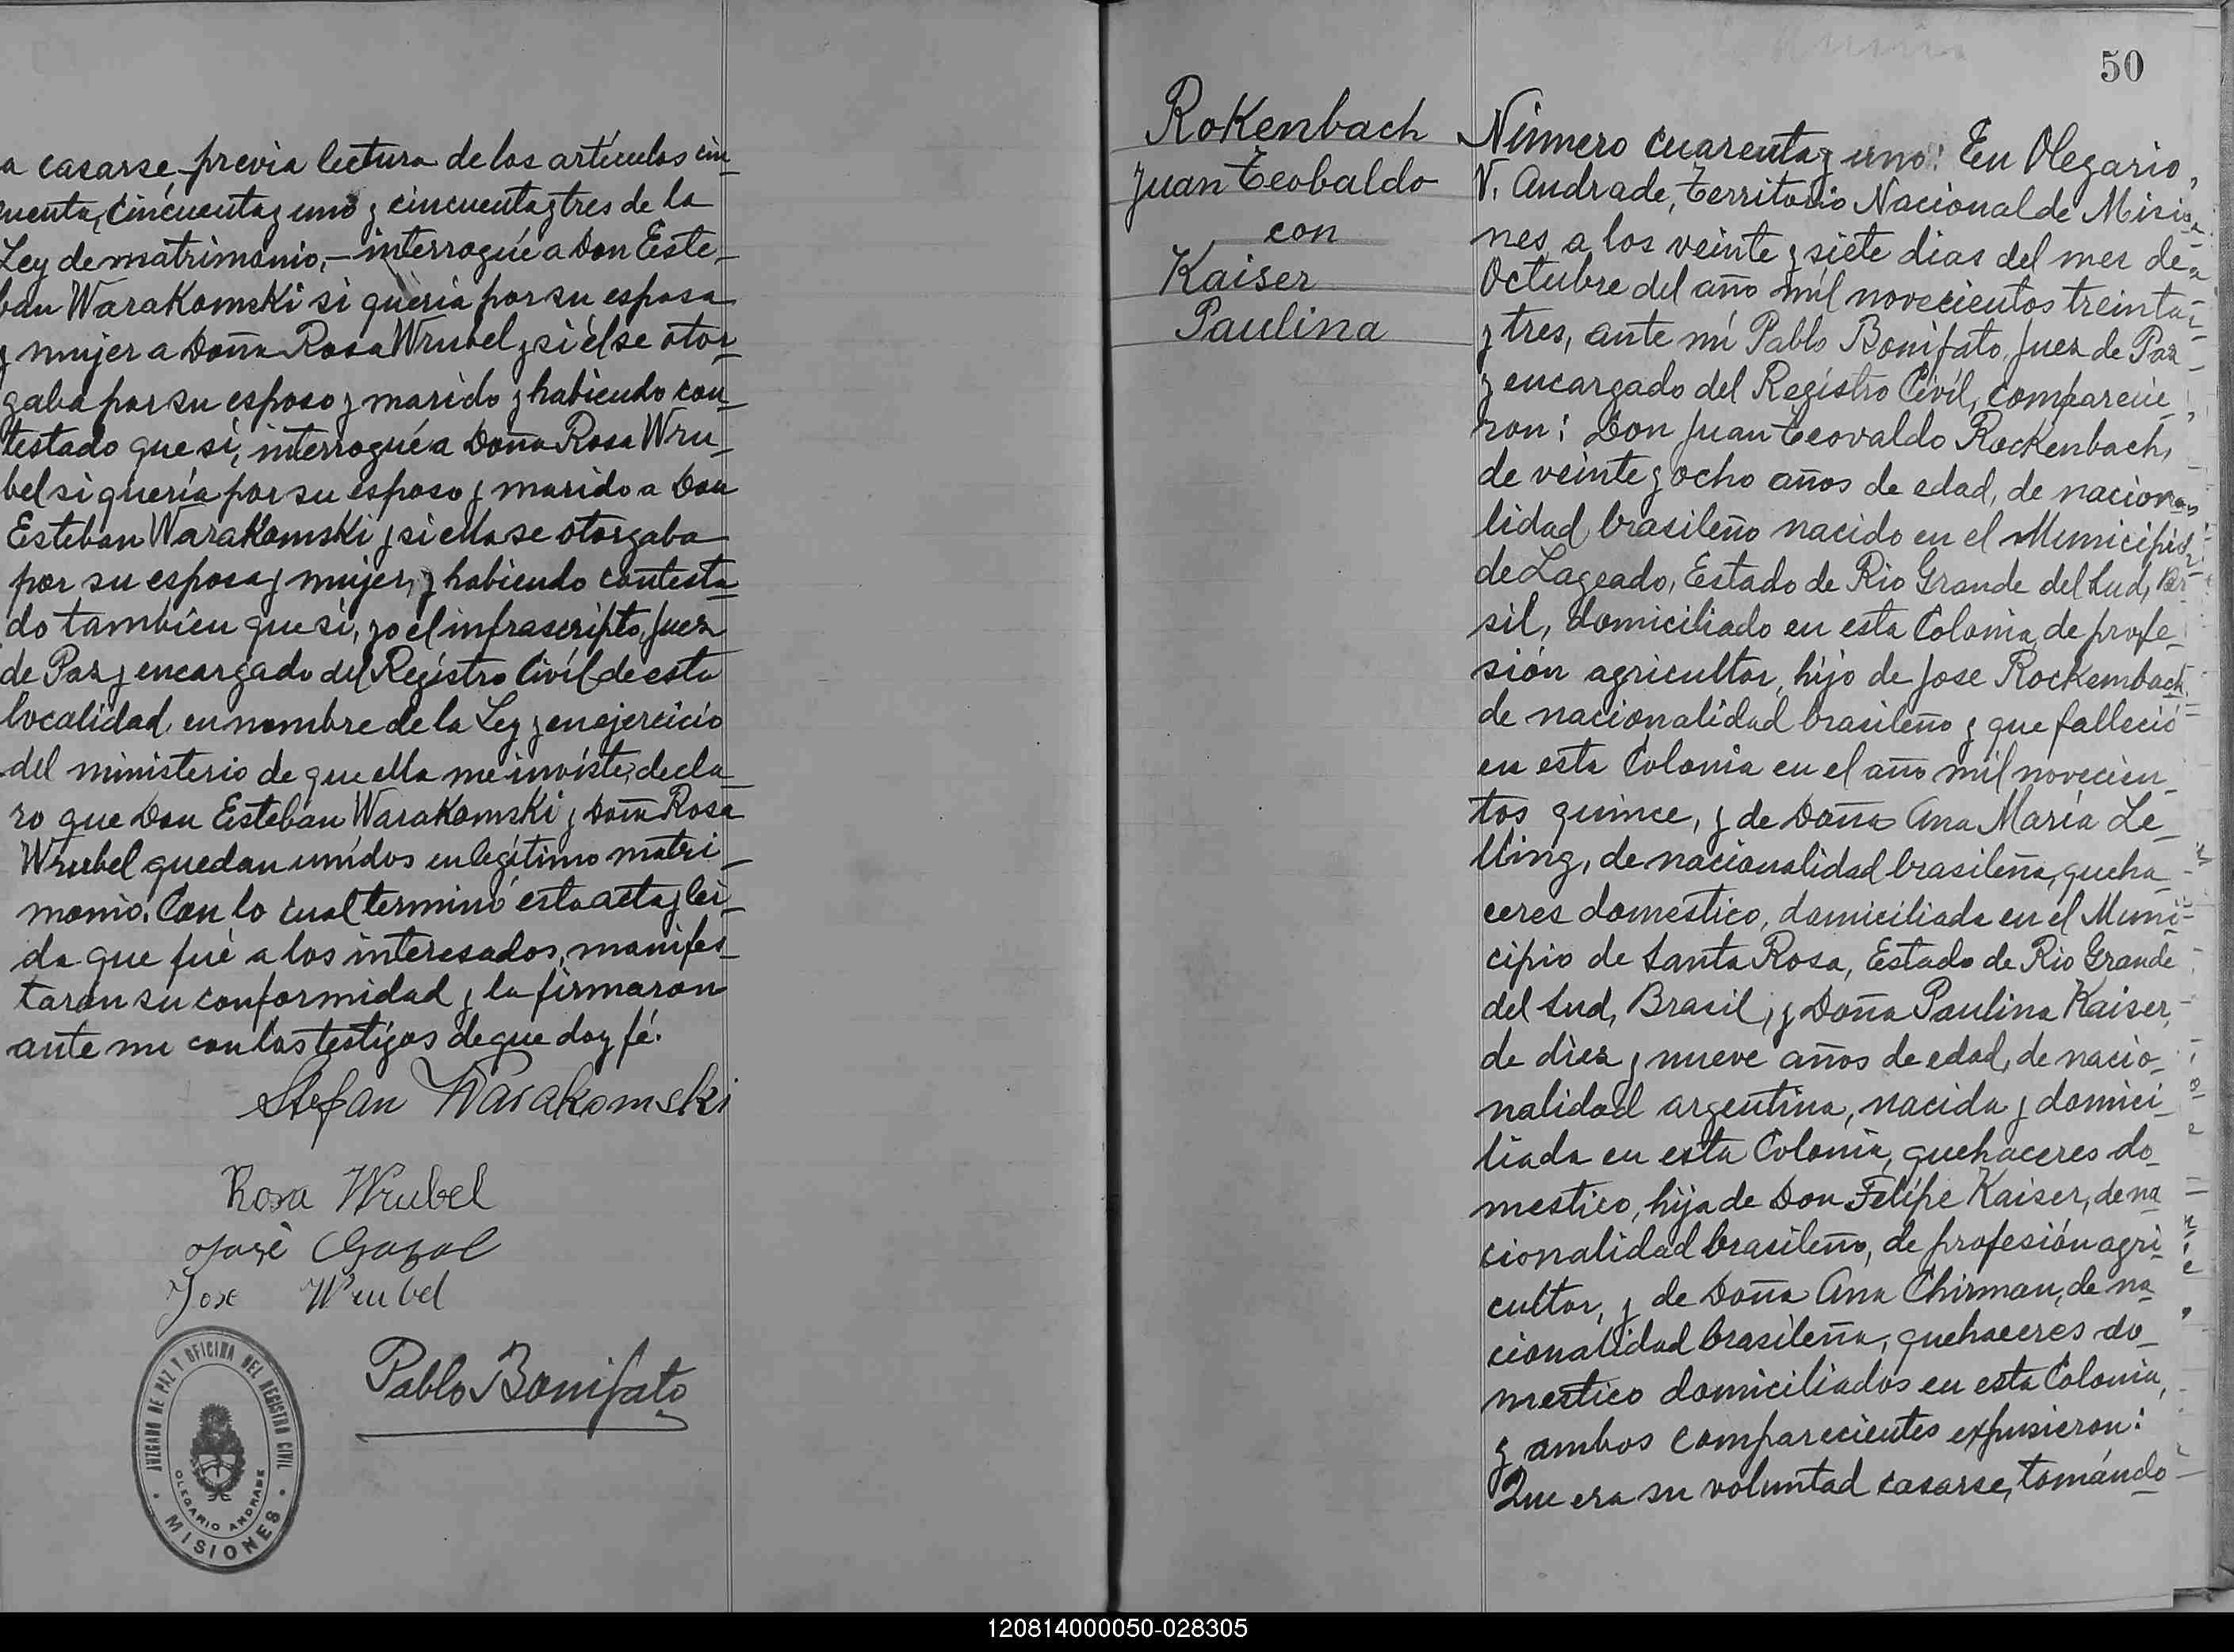 a casarse, previa lectura de los artículos cin_
cuenta, cincuenta y uno y cincuenta y tres de la
Ley de matrimonio,- interrogué a Don Este_
ban Warakomski si quería por su esposa
y mujer a Doña Rosa Wrubel y si él se otor_
gaba por su esposo y marido y habiendo con_
testado que si, interrogué a Doña Rosa Wru_
bel si quería por su esposo y marido a Don
Esteban Warakomski y si ella se otorgaba
por su esposa y mujer, y habiendo contesta_
do también que si, yo el infrascripto, Juez
de Paz y encargado del Registro Civil de esta
localidad, en nombre de la Ley y en ejercicio
del ministerio de que ella me inviste, decla_
ro que Don Esteban Warakomski y Doña Rosa
Wrubel quedan unidos en legítimo matri_
monio. Con lo cual terminó esta acta y leí_
da que fué a los interesados, manifes_
taron su conformidad y la firmaron
ante mi con los testigos de que doy fé.
Stefan Warakomski
Rosa Wrubel
José
Jose Wrubel
Pablo Bonifato
JUZGADO DE PAZ Y OFICINA DEL REGISTRO CIVIL
OLEGARIO ANDRADE
MISIONES
50
Rokenbach
Juan Teobaldo
con
Kaiser
Paulina
Número cuarenta y uno: En Olegario
V. Andrade, Territorio Nacional de Misio_
nes a los veinte y siete dias del mes de
Octubre del año mil novecientos treinta
y tres, ante mí Pablo Bonifato, Juez de Paz
y encargado del Registro Civil, comparecie_
ron: Don Juan Teovaldo Rockenbach,
de veinte y ocho años de edad, de naciona_
lidad brasileño nacido en el Municipio
de Lageado, Estado de Rio Grande del Sud, Bra_
sil, domiciliado en esta Colonia, de profe_
sión agricultor, hijo de Jose Rockembach
de nacionalidad brasileño y que falleció
en esta Colonia en el año mil novecien_
tos quince, y de Doña Ana María Le_
lling, de nacionalidad brasileña, queha_
ceres domestico, domiciliada en el Muni_
cipio de Santa Rosa, Estado de Rio Grande
del Sud, Brasil, y Doña Paulina Kaiser,
de diez y nueve años de edad, de nacio_
nalidad argentina, nacida y domici_
liada en esta Colonia, quehaceres do_
mestico, hija de Don Felipe Kaiser, de na_
cionalidad brasileño, de profesión agri_
cultor, y de Doña Ana Chirman, de na_
cionalidad brasileña, quehaceres do_
mestico domiciliados en esta Colonia,
y ambos comparecientes expusieron:
Que era su voluntad casarse, tomándo_
120814000050-028305